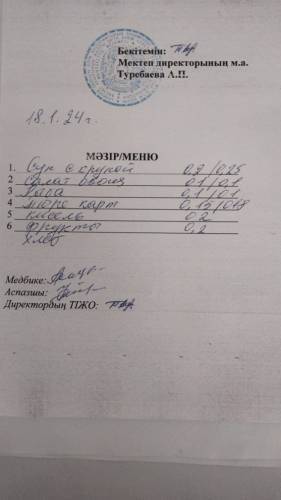 Бекітемін:
Мектеп директорының м.а.
Туребаева А.П.
18.1.24 г.
МӘЗІР/МЕНЮ
1. Суп с крупой 0,2/0,25
2 Салат овощ 0,1/0,1
3 0,1/0,1
4 пюре карт 0,15/0,18
5 кисель 0,2
6 Фрукты 0,2
хлеб
Медбике:
Аспазшы:
Директордың ТІЖО: